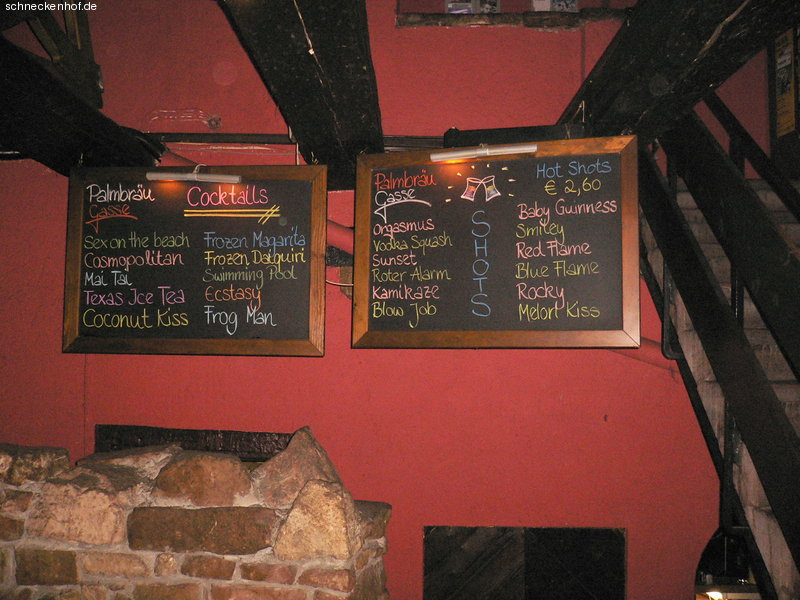 schneckenhof.de
Palmbräu Cocktails
Gasse
Sex on the beach
Cosmopolitan
Mai Tai
Texas Ice Tea
Coconut Kiss
Frozen Magarita
Frozen Daiquiri
Swimming Pool
Ecstasy
Frog Man
Palmbräu
Gasse
Orgasmus
Vodka Squash
Sunset
Roter Alarm
Kamikaze
Blow Job
SHOTS
Hot Shots
€ 2,60
Baby Guinness
Smiley
Red Flame
Blue Flame
Rocky
Melon Kiss